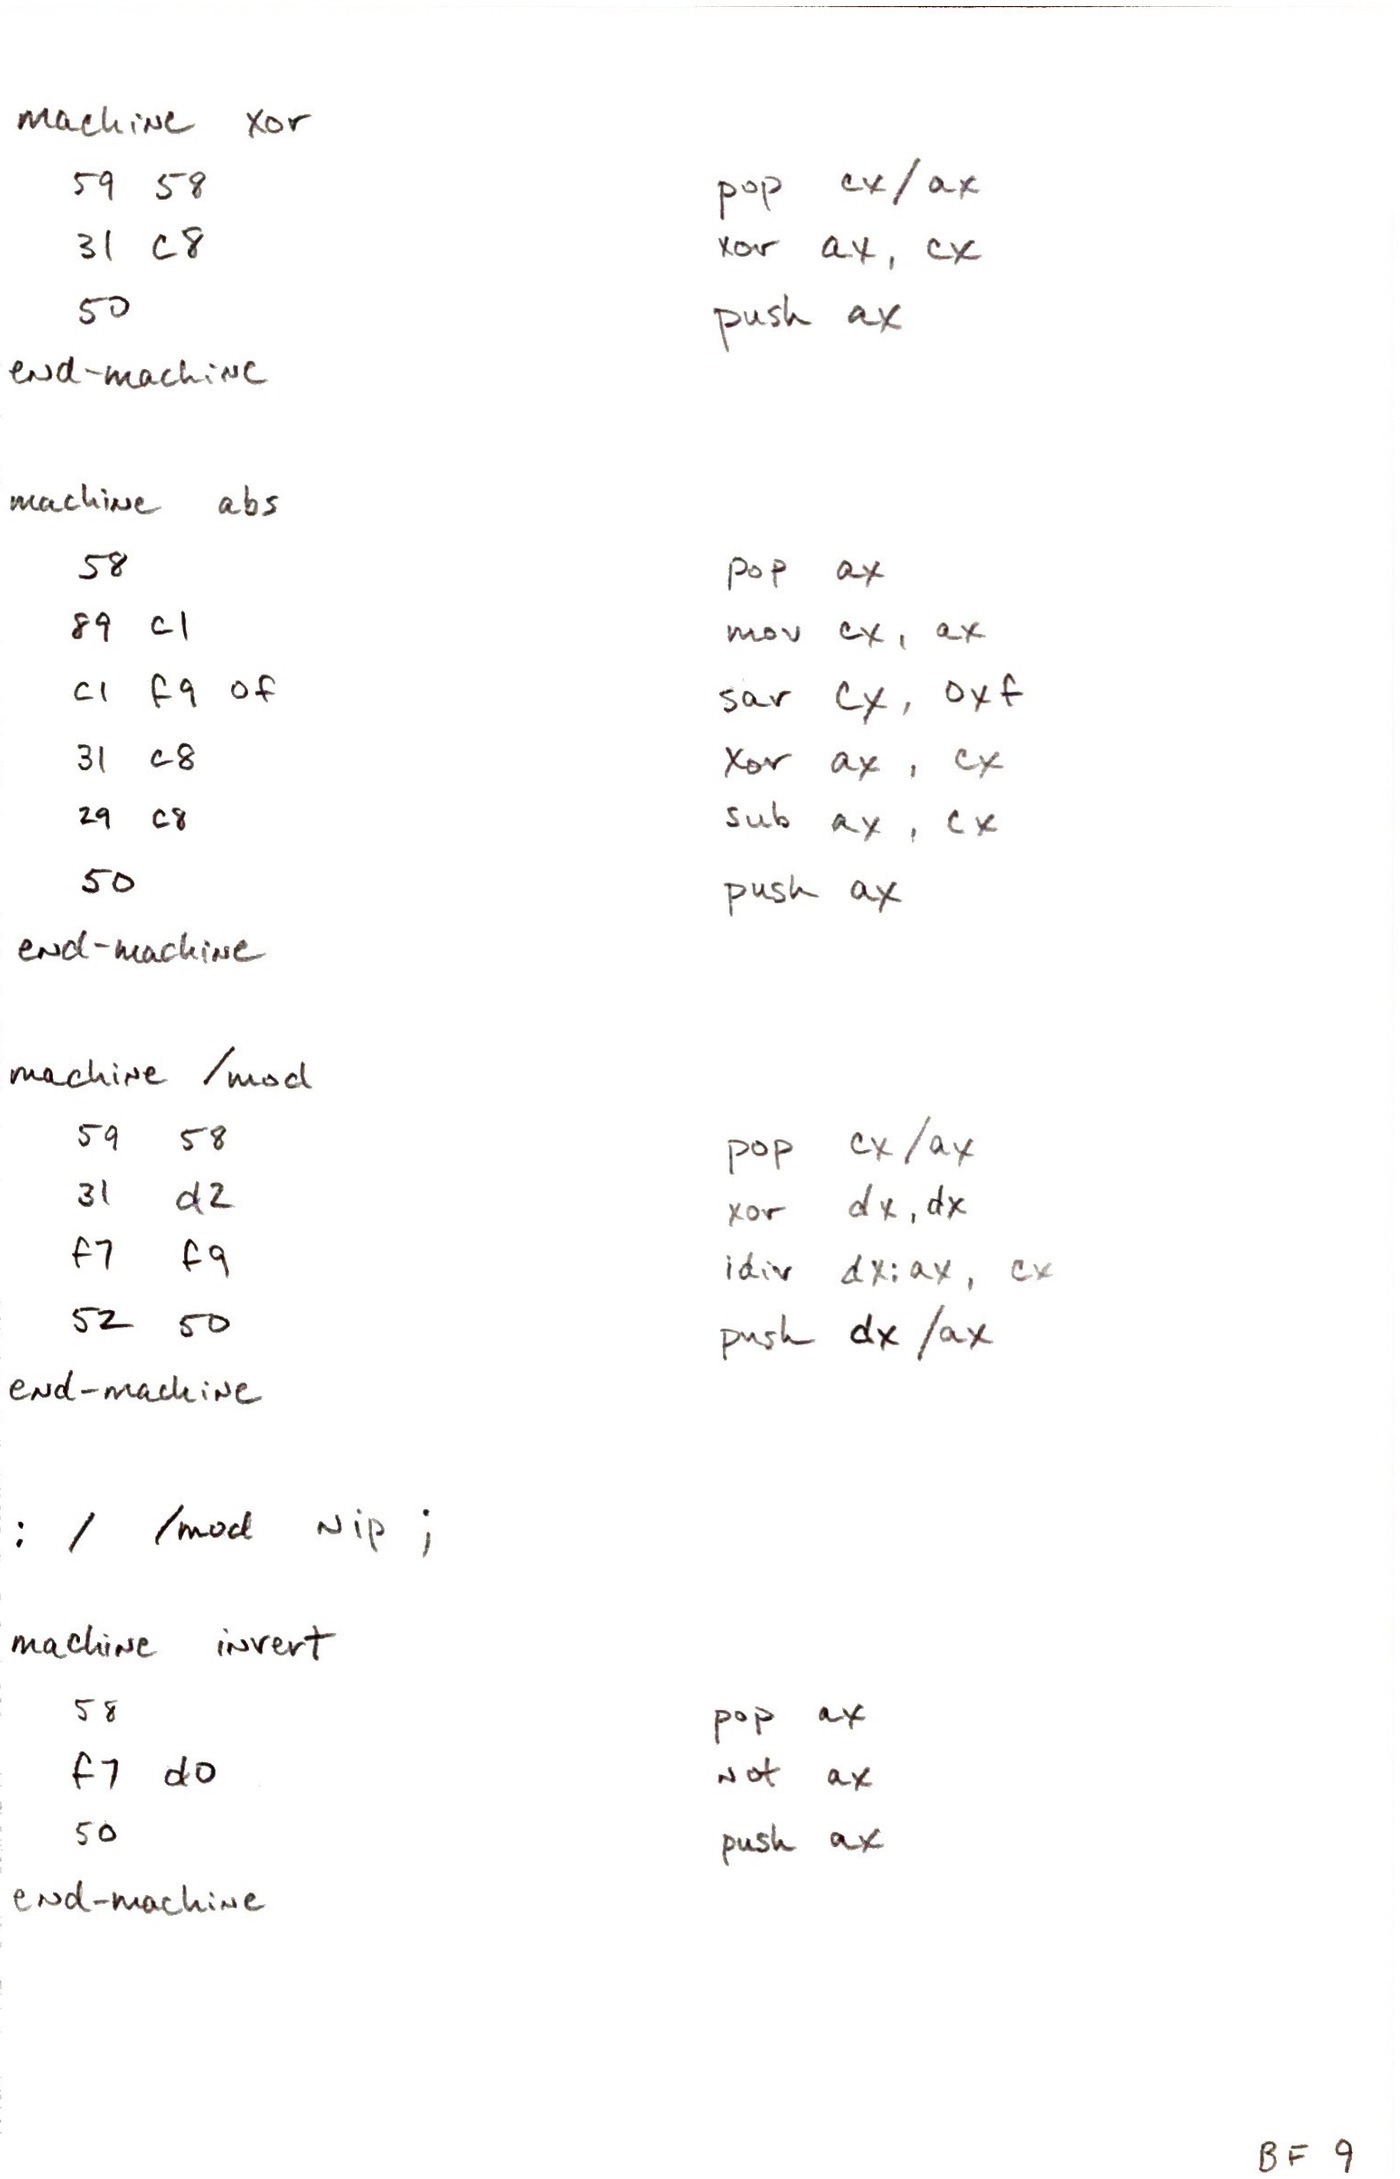 machine xor
59 58 pop cx/ax
31 c8 xor ax, cx
50 push ax
end-machine
machine abs
58 pop ax
89 c1 mov cx, ax
c1 f9 0f sar cx, 0xf
31 c8 xor ax, cx
29 c8 sub ax, cx
50 push ax
end-machine
machine /mod
59 58 pop cx/ax
31 d2 xor dx,dx
f7 f9 idiv dx:ax, cx
52 50 push dx/ax
end-machine
: / /mod nip ;
machine invert
58 pop ax
f7 d0 not ax
50 push ax
end-machine
BF 9